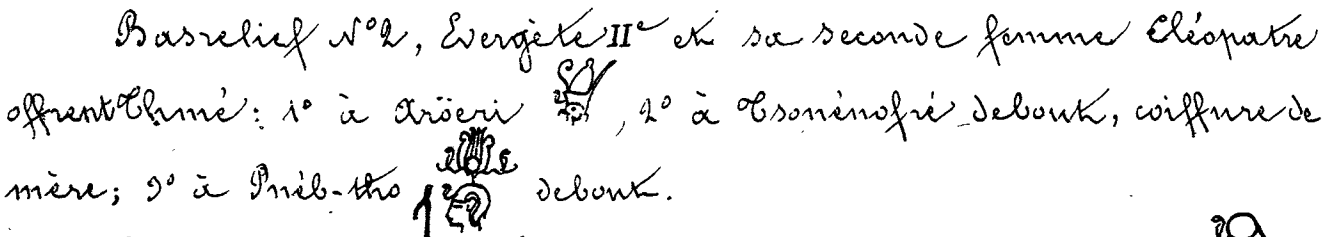 Basrelief N°2, Evergète IIe et sa seconde femme Cléopatre
offrent Thmé: 1° à Aröeri , 2° à Tsonénofré debout, coiffure de
mère; 3° à Pnéb-tho debout.